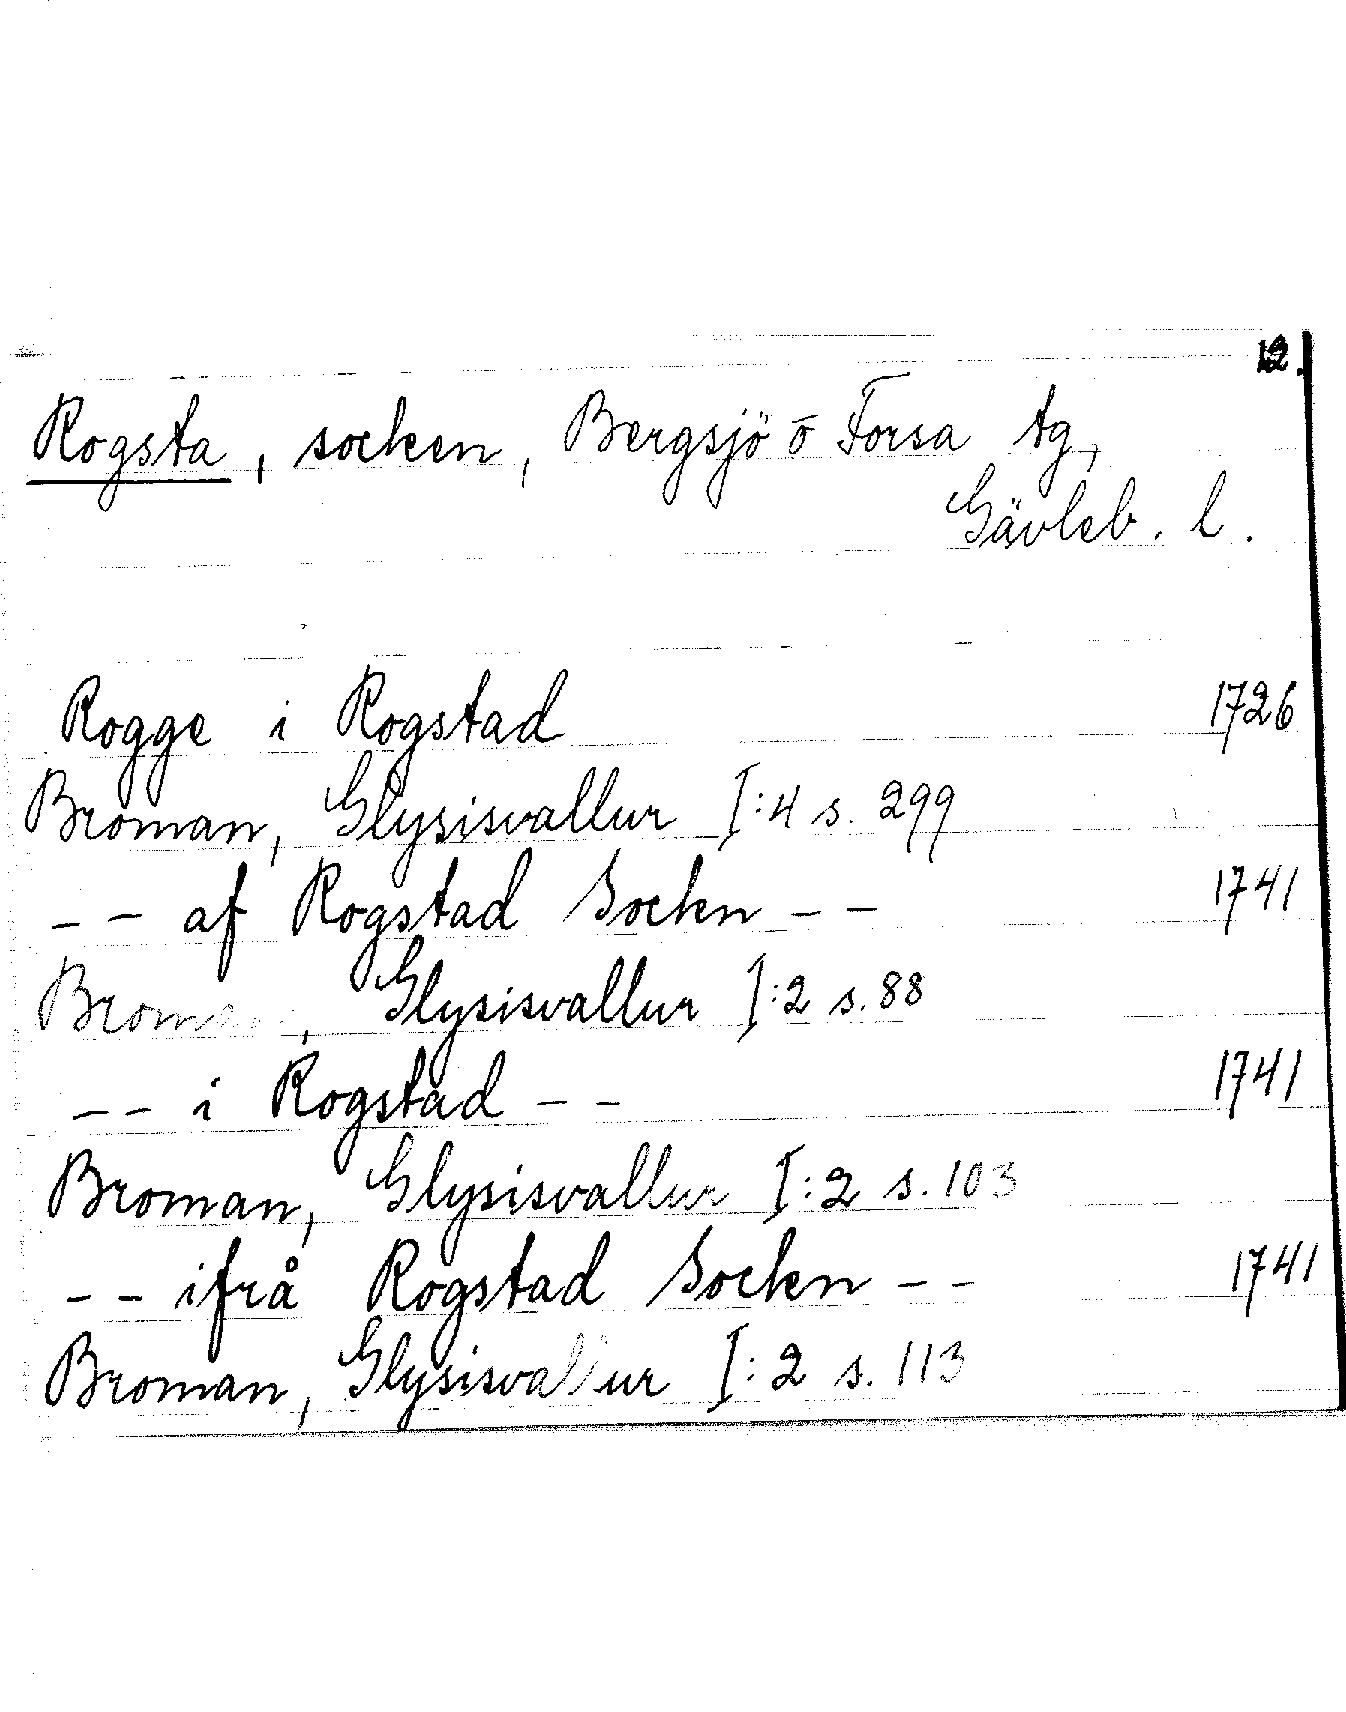 12.
Rogsta, socken, Bergsjö o Forsa tg,
Gävleb. l.
Rogge i Rogstad 1726
Broman, Glysisvallur I:4 s. 299
-- af Rogstad Sockn -- 1741
Broman, Glysisvallur I:2 s. 88
-- i Rogstad -- 1741
Broman, Glysisvallur I:2 s. 103
-- ifrå Rogstad Sockn -- 1741
Broman, Glysisvallur I:2 s. 113